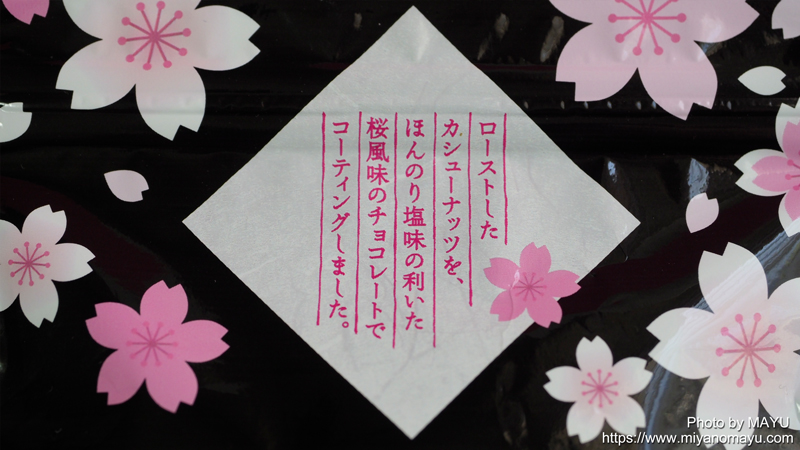 ローストした
カシューナッツを、
ほんのり塩味の利いた
桜風味のチョコレートで
コーティングしました。
Photo by MAYU
https://www.miyanomayu.com